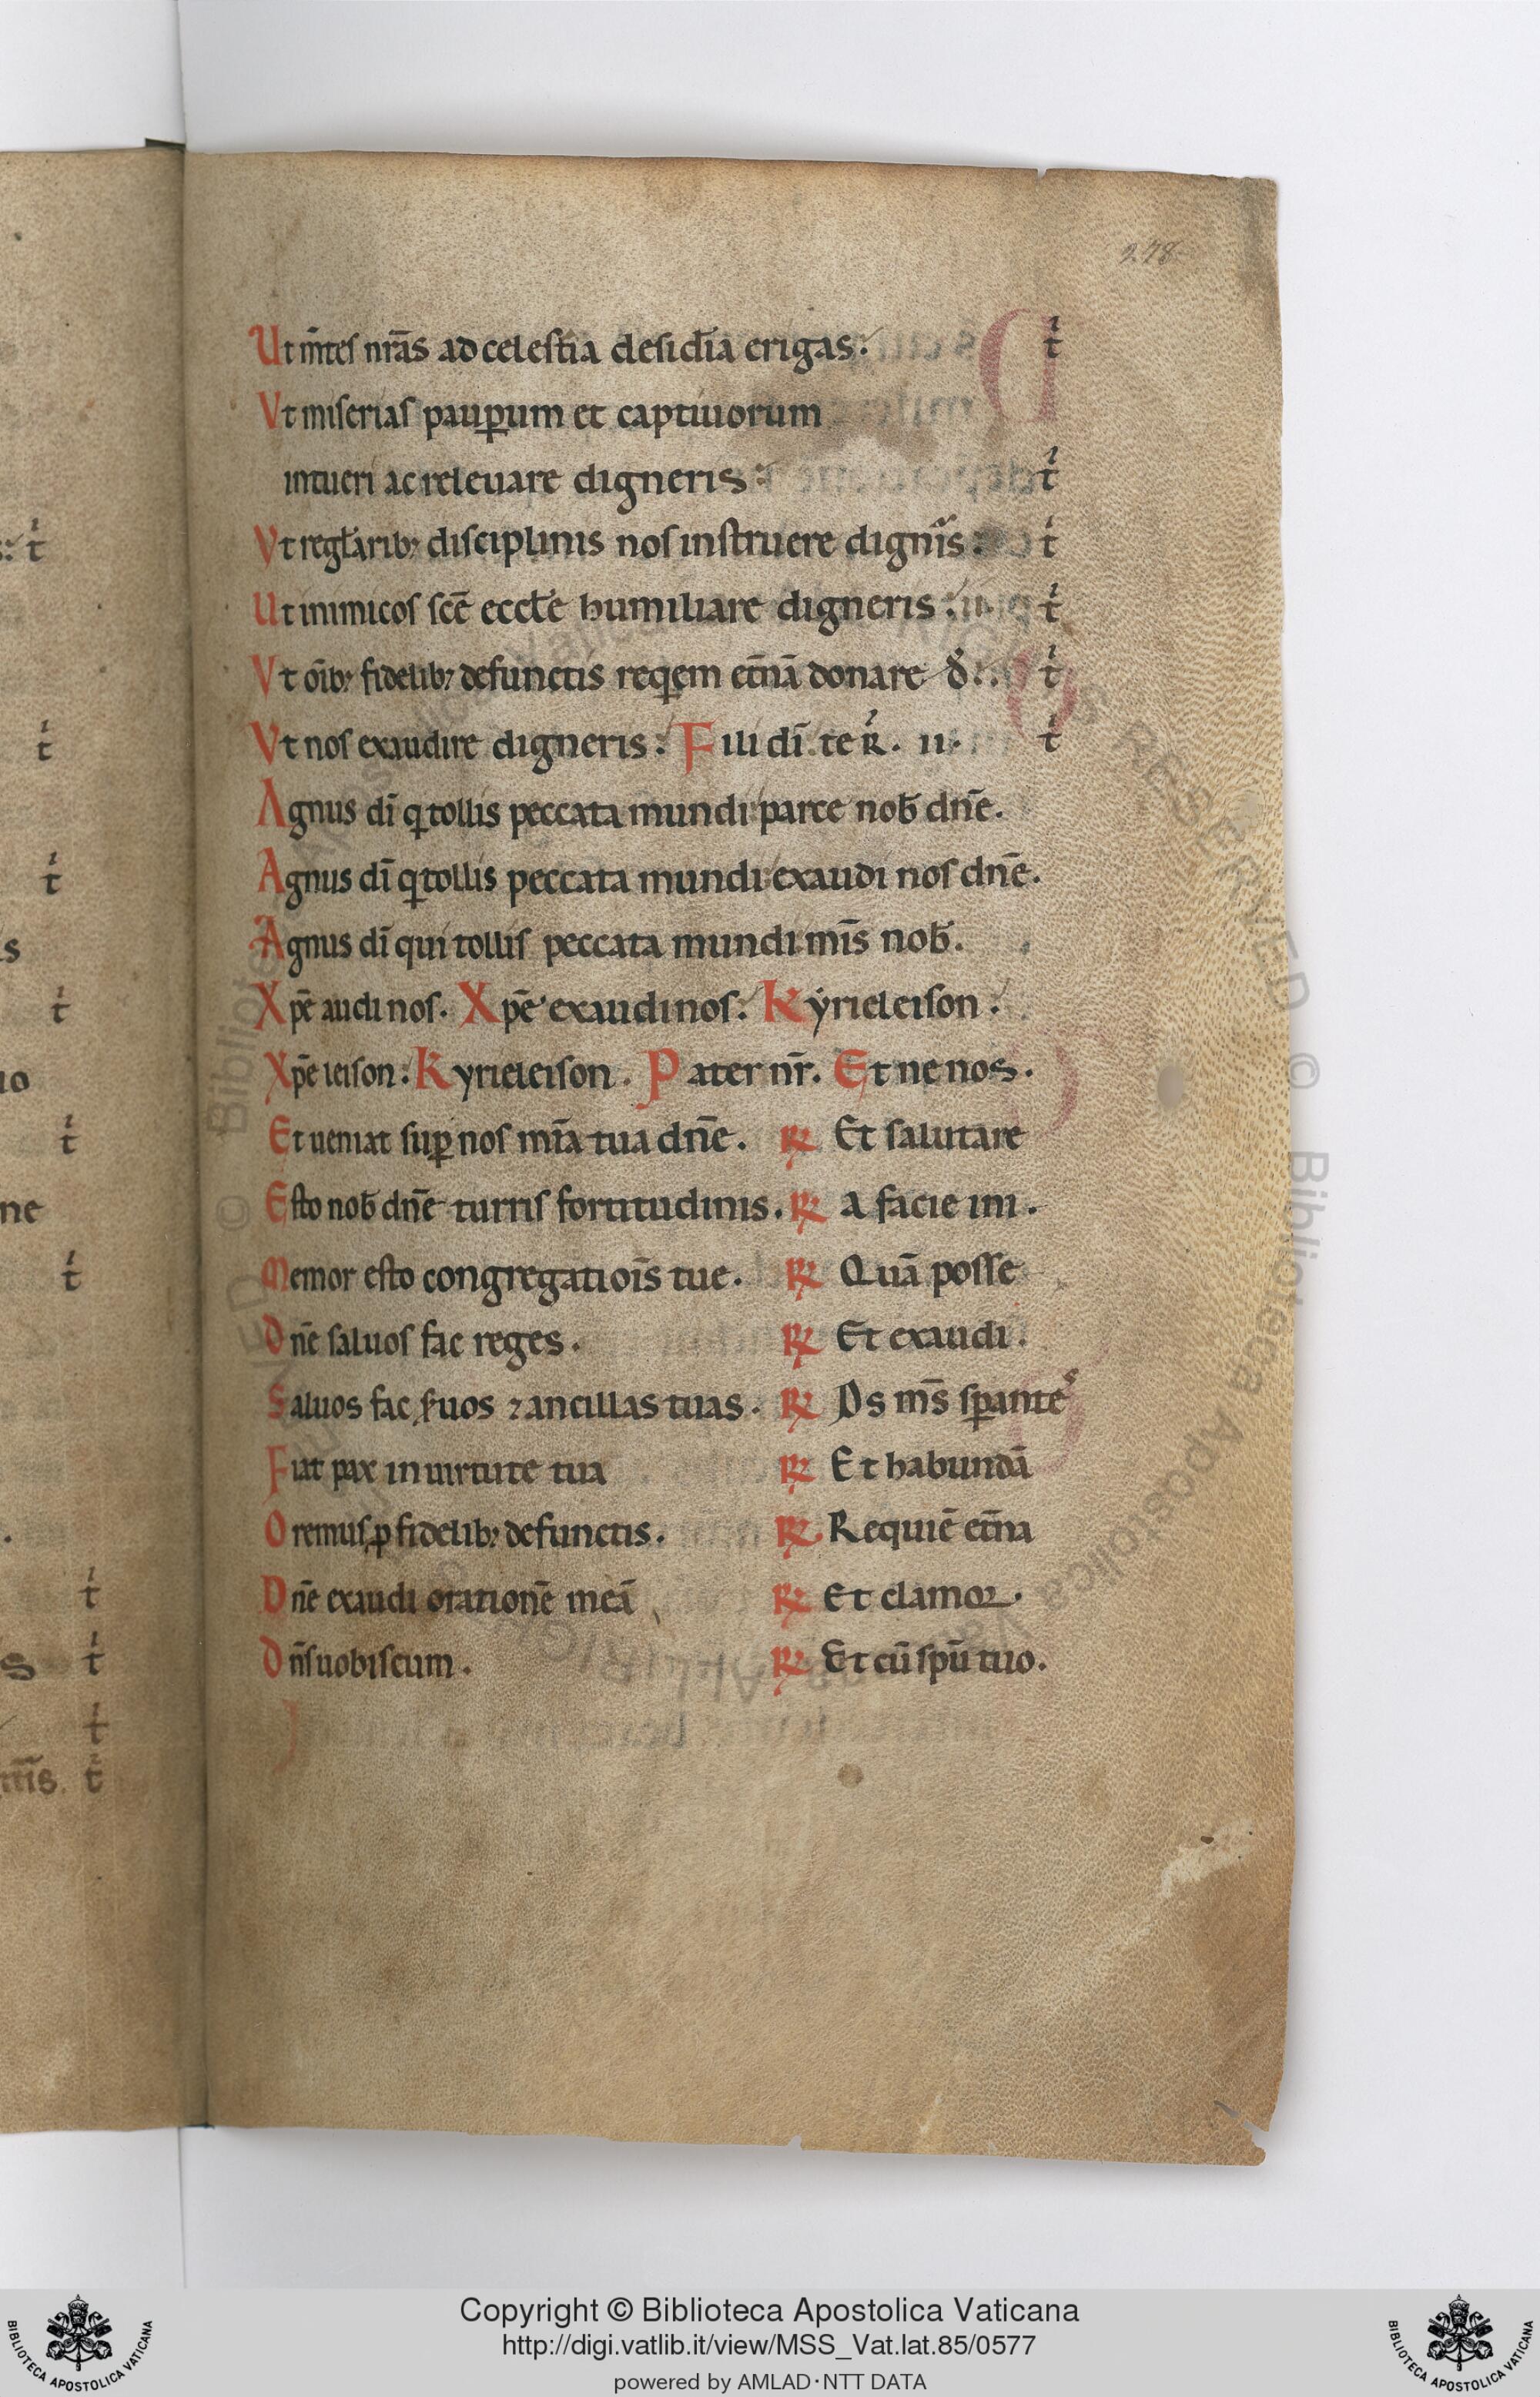 278
Ut m̅tes nr̅as ad celestia desid̅ia erigas. t
Vt miserias paup̲um et captiuorum
intueri ac releuare digneris: t
Vt regł̅arib; disciplinis nos instruere dign̅is: t
Ut inimicos sc̅e eccł̅e humiliare digneris: t
Vt o̅ib; fidelib; defunctis req̲em et̅na̅ donare d̅: t
Vt nos exaudire digneris: Fili di̅ te R̅. ii. t
Agnus di̅ q tollis peccata mundi parce nob̅ dn̅e.
Agnus di̅ q tollis peccata mundi exaudi nos dn̅e.
Agnus di̅ qui tollis peccata mundi mis̅ nob̅.
Xpe̅ audi nos. Xpe̅ exaudi nos: Kyrieleison:
Xpe̅ leison: Kyrieleison. Pater nr̅. Et ne nos.
Et ueniat sup̲ nos mi̅a tua dn̅e. ℟ Et salutare
Esto nob̅ dn̅e turris fortitudinis. ℟ A facie ini.
Memor esto congregatiois̅ tue. ℟ Qua̅ posse
Dne̅ saluos fac reges. ℟ Et exaudi.
Saluos fac s̅uos ⁊ ancillas tuas. ℟ Ds ms̅ sp̲antes
Fiat pax in uirtute tua ℟ Et habunda̅
Oremus p̲ fidelib; defunctis. ℟ Requie̅ et̅na
Dne̅ exaudi oratione̅ mea̅ ℟ Et clamor.
Dn̅s uobiscum. ℟ Et cu̅ spu̅ tuo.
Copyright © Biblioteca Apostolica Vaticana
http://digi.vatlib.it/view/MSS_Vat.lat.85/0577
powered by AMLAD·NTT DATA